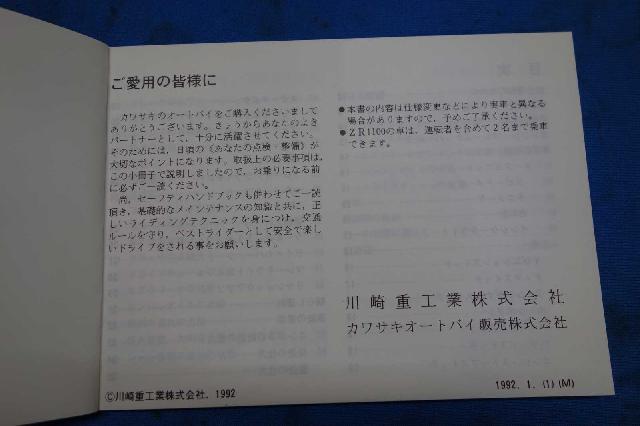 ご愛用の皆様に
カワサキのオートバイをご購入くださいまして
ありがとうございます。きょうからあなたのよき
パートナーとして、十分に活躍させてください。
そのためには、日頃の《あなたの点検・整備》が
大切なポイントになります。取扱上の必要事項は、
この小冊子で説明しましたので、お乗りになる前
に必ずご一読ください。
尚、セーフティハンドブックも併わせてご一読
頂き、基礎的なメインテナンスの知識と共に、正
しいライディングテクニックを身につけ、交通
ルールを守り、ベストライダーとして安全で楽し
いドライブをされる事をお願いします。
©川崎重工業株式会社、1992
●本書の内容は仕様変更などにより実車と異なる
場合がありますので、予めご了承ください。
●ZR1100の車は、運転者を含めて2名まで乗車
できます。
川崎重工業株式会社
カワサキオートバイ販売株式会社
1992. 1. (1) (M)